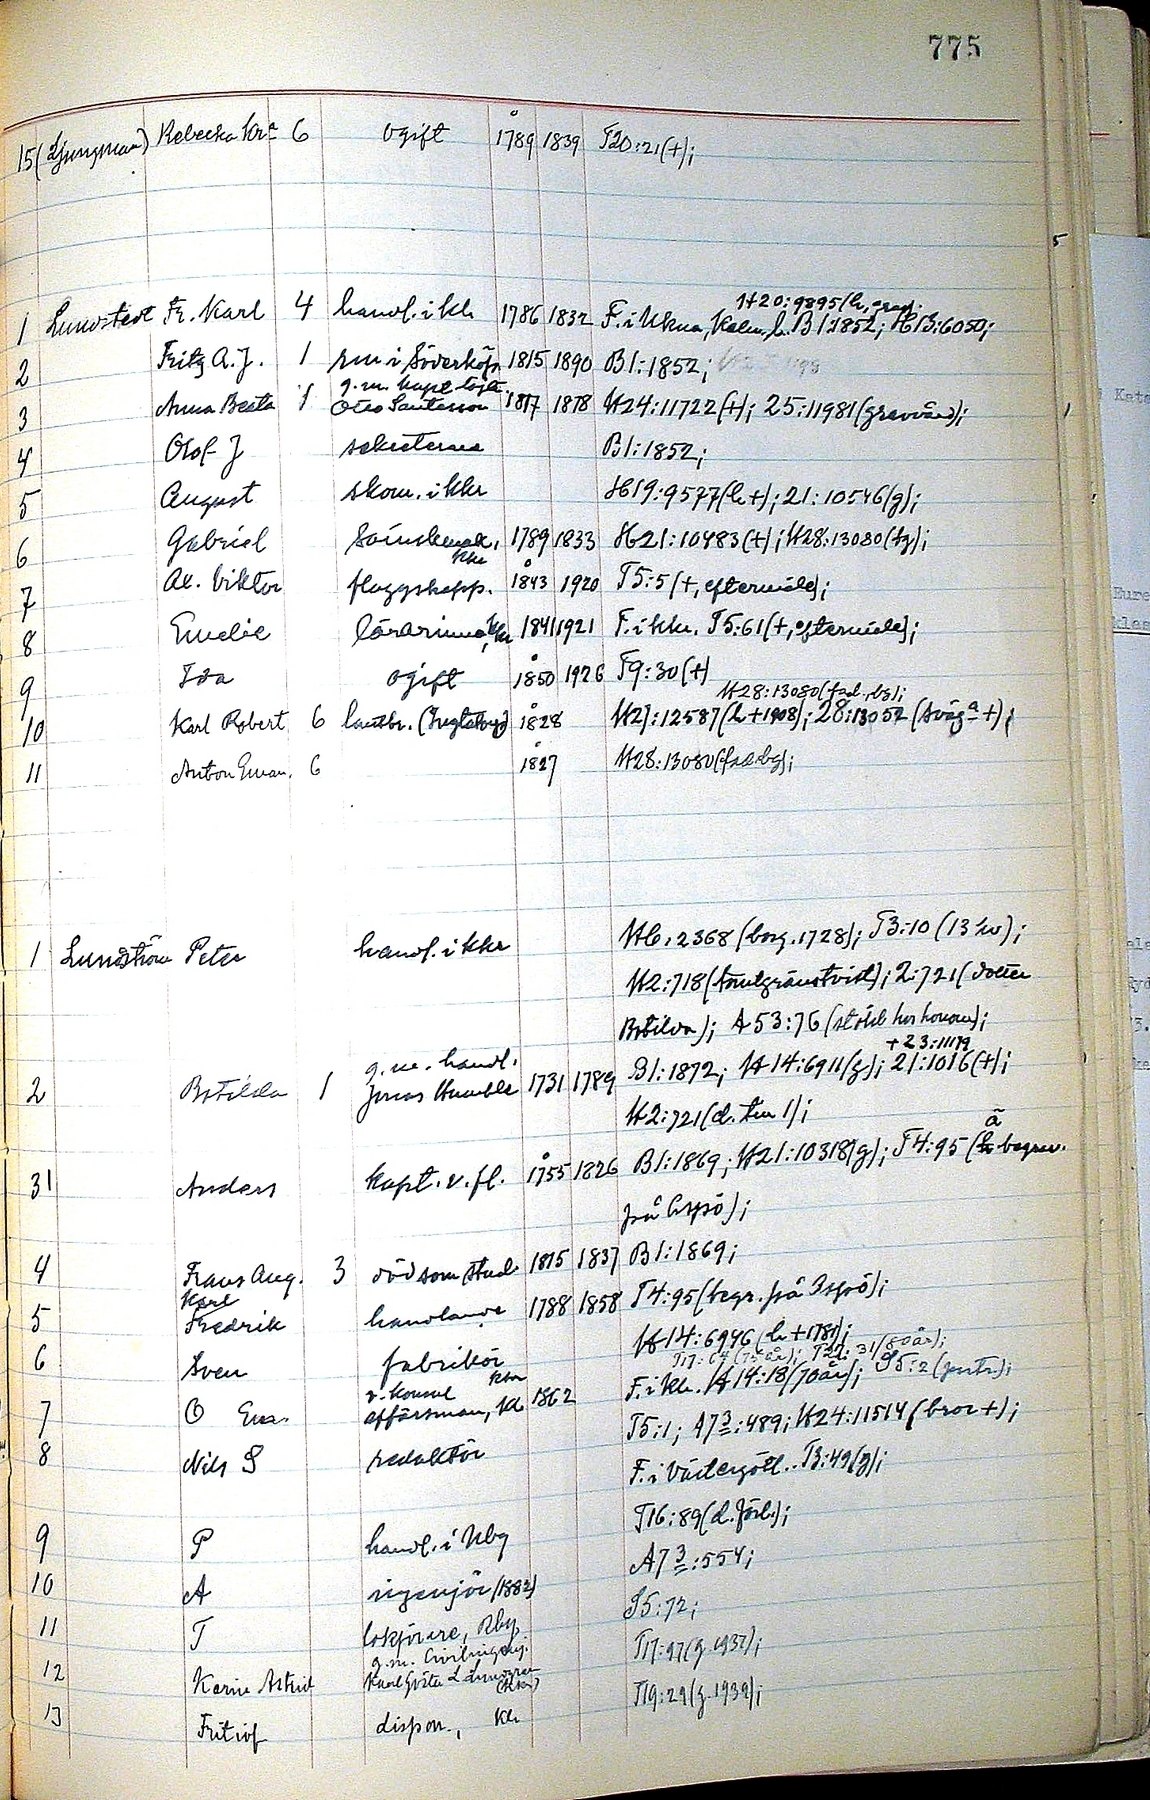 775
15 (Ljungman) Rebecka Kr:a 6 ogift 1789 1839 T20:21(+);
H20:9895(h, grav);
1 Lundstedt Fr. Karl 4 handl. i kkr 1786 1832 F. i Ukna, Kalm. l. B1:1852; H13:6050;
2 Fritz A. J. 1 rm i Söderköp. 1815 1890 B1:1852;
g. m. kapt. löjtn.
3 Anna Beata 1 Otto Santesson 1817 1878 H24:11722(+); 25:11981(gravvård);
4 Olof J sekreterare B1:1852;
5 August skom. i kkr H19:9577(h+); 21:10546(g);
6 Gabriel 1789 1833 H21:10483(+); H28:13080(fg);
kkr
7 Ax. Viktor flaggskepp. 1843 1920 T5:5(+, eftermäle);
8 Emelie lärarinna, kkr 1841 1921 F. i kkr. T5:61(+, eftermäle);
9 Ida ogift 1850 1926 T9:30(+)
H28:13080(fad. bg);
10 Karl Robert 6 lantbr. (Ingletorp) 1828 H27:12587(h+1908); 28:13052(svåg:a +);
11 Anton Eman. 6 1827 H28:13080(fad. bg);
1 Lundström Peter handl. i kkr H6:2368(borg. 1728); T3:10(13 hv);
H2:718(tomtgränstvist); 2:721(dotter
Botilda); A53:76(stöld hos honom);
+23:11179
g. m. handl.
2 Botilda 1 Jonas Humble 1731 1789 B1:1872; H14:6911(g); 21:1016(+);
H2:721(d. t. 1);
ä
31 Anders kapt. v. fl. 1755 1826 B1:1869; H21:10318(g); T4:95(begrav.
på Aspö);
4 Frans Aug. 3 död som stud. 1815 1837 B1:1869;
Karl
5 Fredrik handlande 1788 1858 T4:95(begr. på Aspö);
6 Sven fabrikör H14:6946(h+1781);
T17:64(75 år); T22:31(80 år);
v. konsul kkr
7 O Em. affärsman, Kh 1862 F. i Kh. H14:18(70 år); S5:2(portr.);
T5:1; A73:489; H24:11514(bror +);
8 Nils S redaktör F. i Västergötl. T3:49(g);
T16:89(d. förl.);
9 P handl. i Kbg A73:554;
10 A ingenjör (1882) S5:72;
11 T lokförare, Rby T17:97(g. 1937);
g. m. Civilingenj.
12 Karin Astrid Karl Gösta T19:29(g. 1939);
13 Fritiof dispon., Kh